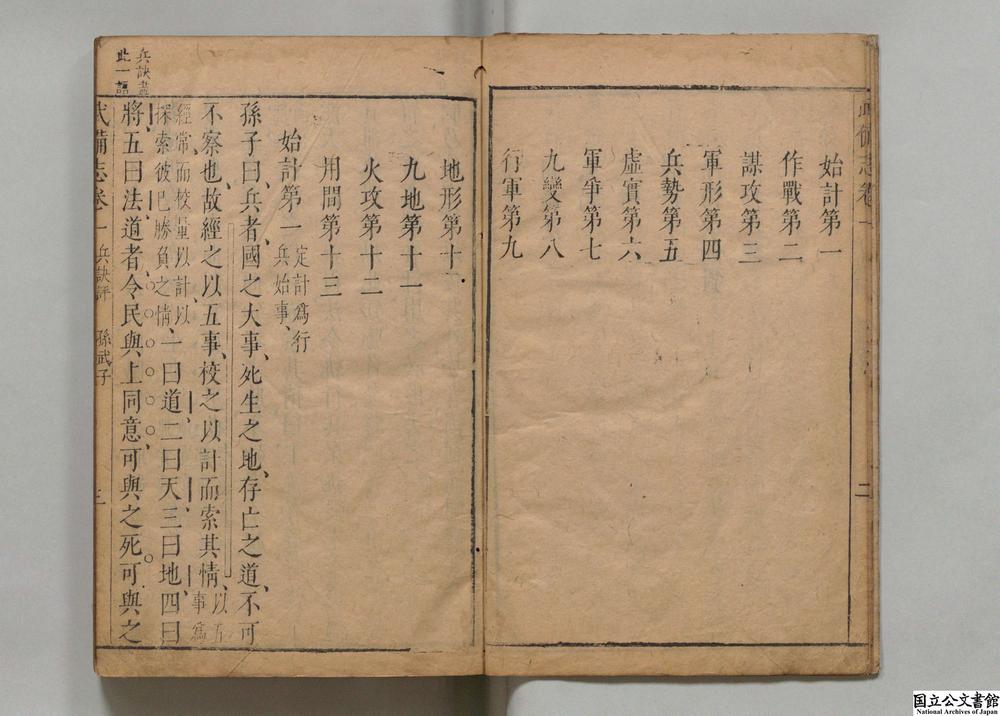 武備志卷一
二
始計第一
作戰第二
謀攻第三
軍形第四
兵勢第五
虛實第六
軍爭第七
九變第八
行軍第九
地形第十
九地第十一
火攻第十二
用間第十三
始計第一 定計為行兵始事
孫子曰兵者國之大事死生之地存亡之道不可
不察也故經之以五事校之以計而索其情 以五事為
經常而校量以計以探索彼巳勝負之情 一曰道二曰天三曰地四曰
將五曰法道者令民與上同意可與之死可與之
兵訣盡
此一語
武備志卷一 兵訣評 孫武子
三
国立公文書館
National Archives of Japan